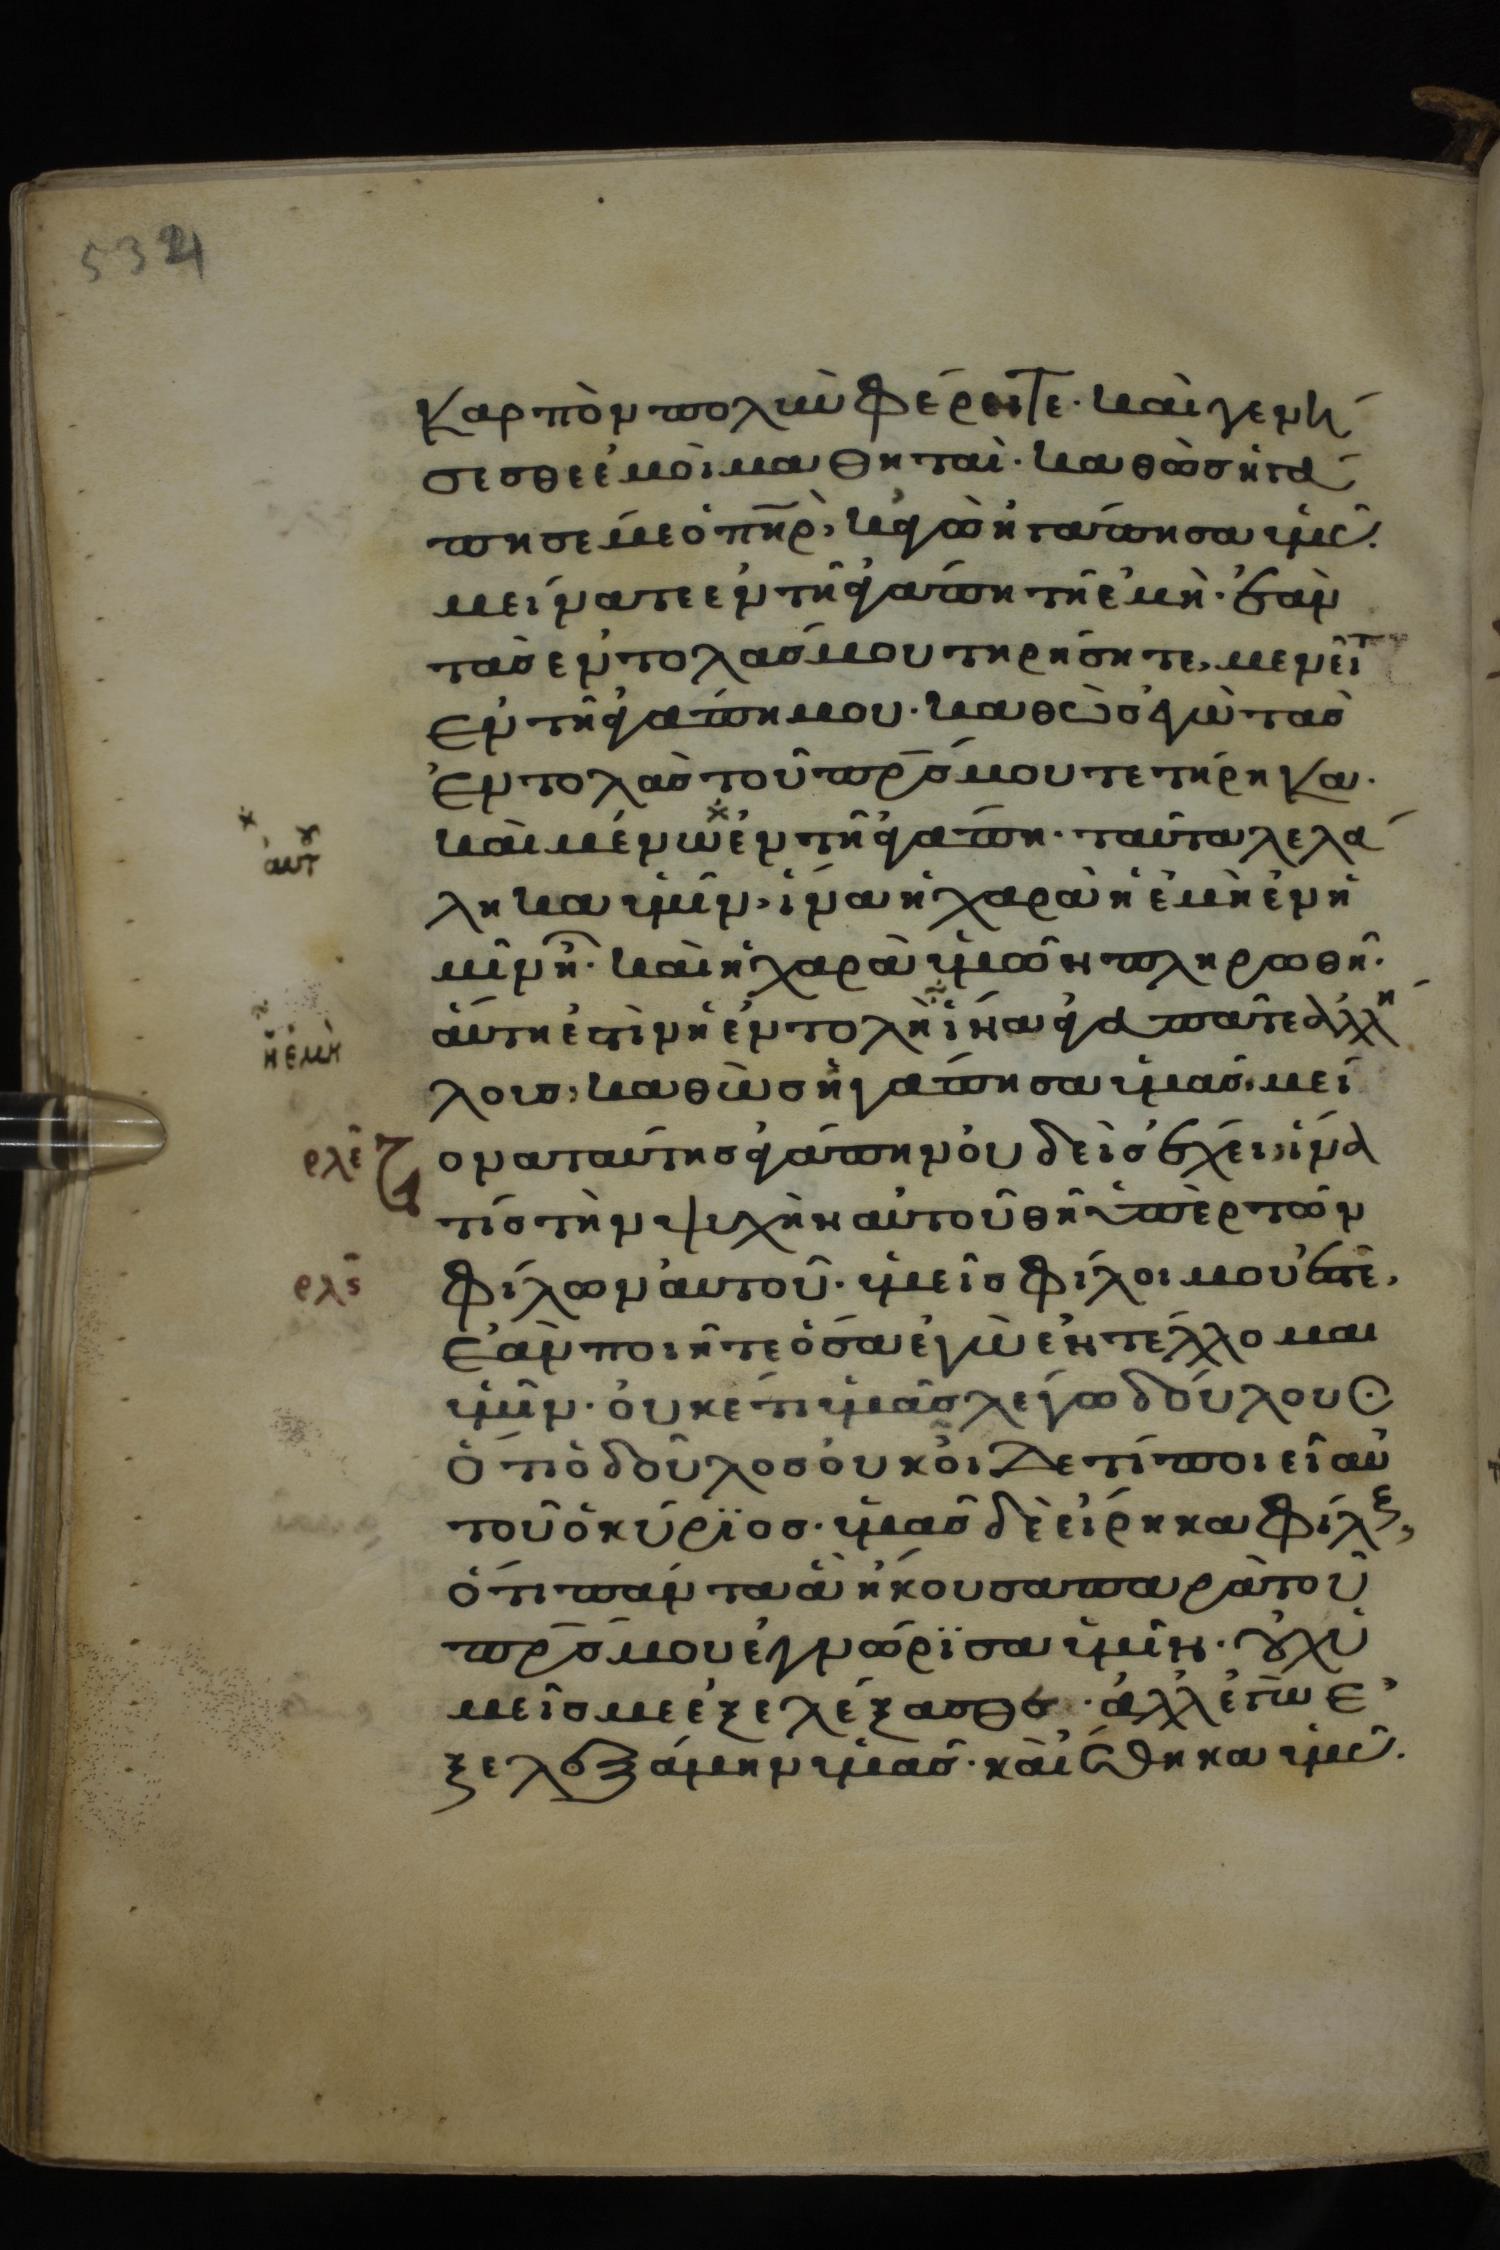 532
καρπὸν πολὺν φέρητε· καὶ γενή
σεσθε ἐμοὶ μαθηταί· καθὼς ἠγά
πησέ με ὁ πηρ̀, κἀγὼ ἠγάπησα ὑμᾶς.
μείνατε ἐν τῆ ἀγάπη τῆ ἐμῆ· ἐὰν
τὰς ἐντολάς μου τηρήσητε, μενεῖτε
ἐν τῆ ἀγάπη μου· καθὼς ἐγὼ τὰς
ἐντολὰς τοῦ πρς μου τετήρηκα·
καὶ μένω ἐν τῆ ἀγάπη· ταῦτα λελά
αὐτου
ληκα ὑμῖν, ἵνα ἡ χαρὰ ἡ ἐμὴ ἐν ὑ
μῖν ἦ· καὶ ἡ χαρὰ ὑμῶν πληρωθῆ·
αὕτη ἐστὶν ἡ ἐντολὴ ἵνα ἀγαπᾶτε ἀλλή
ἡ ἐμὴ
λους, καθὼς ἠγάπησα ὑμᾶς. μεί
ρλε ζονα ταύτης ἀγάπην οὐδεὶς ἔχει, ἵνα
τίς τὴν ψυχὴν αὐτοῦ θῆ ὑπὲρ τῶν
ρλς φίλων αὐτοῦ· ὑμεῖς φίλοι μου ἐστὲ,
ἐὰν ποιῆτε ὅσα ἐγὼ ἐντέλλομαι
ὑμῖν· οὐκέτι ὑμᾶς λέγω δούλους
ὅτι ὁ δοῦλος οὐκ οἶδε τί ποιεῖ αὐ
τοῦ ὁ κύρϊος· ὑμᾶς δὲ εἴρηκα φίλους,
ὅτι πάντα ἃ ἤκουσα παρὰ τοῦ
πρς μου ἐγνώρϊσα ὑμῖν· οὐχ ὑ
μεῖς με ἐξελέξασθε· ἀλλ' ἐγὼ ἐ
ξελεξάμην ὑμᾶς· καὶ ἔθηκα ὑμᾶς.